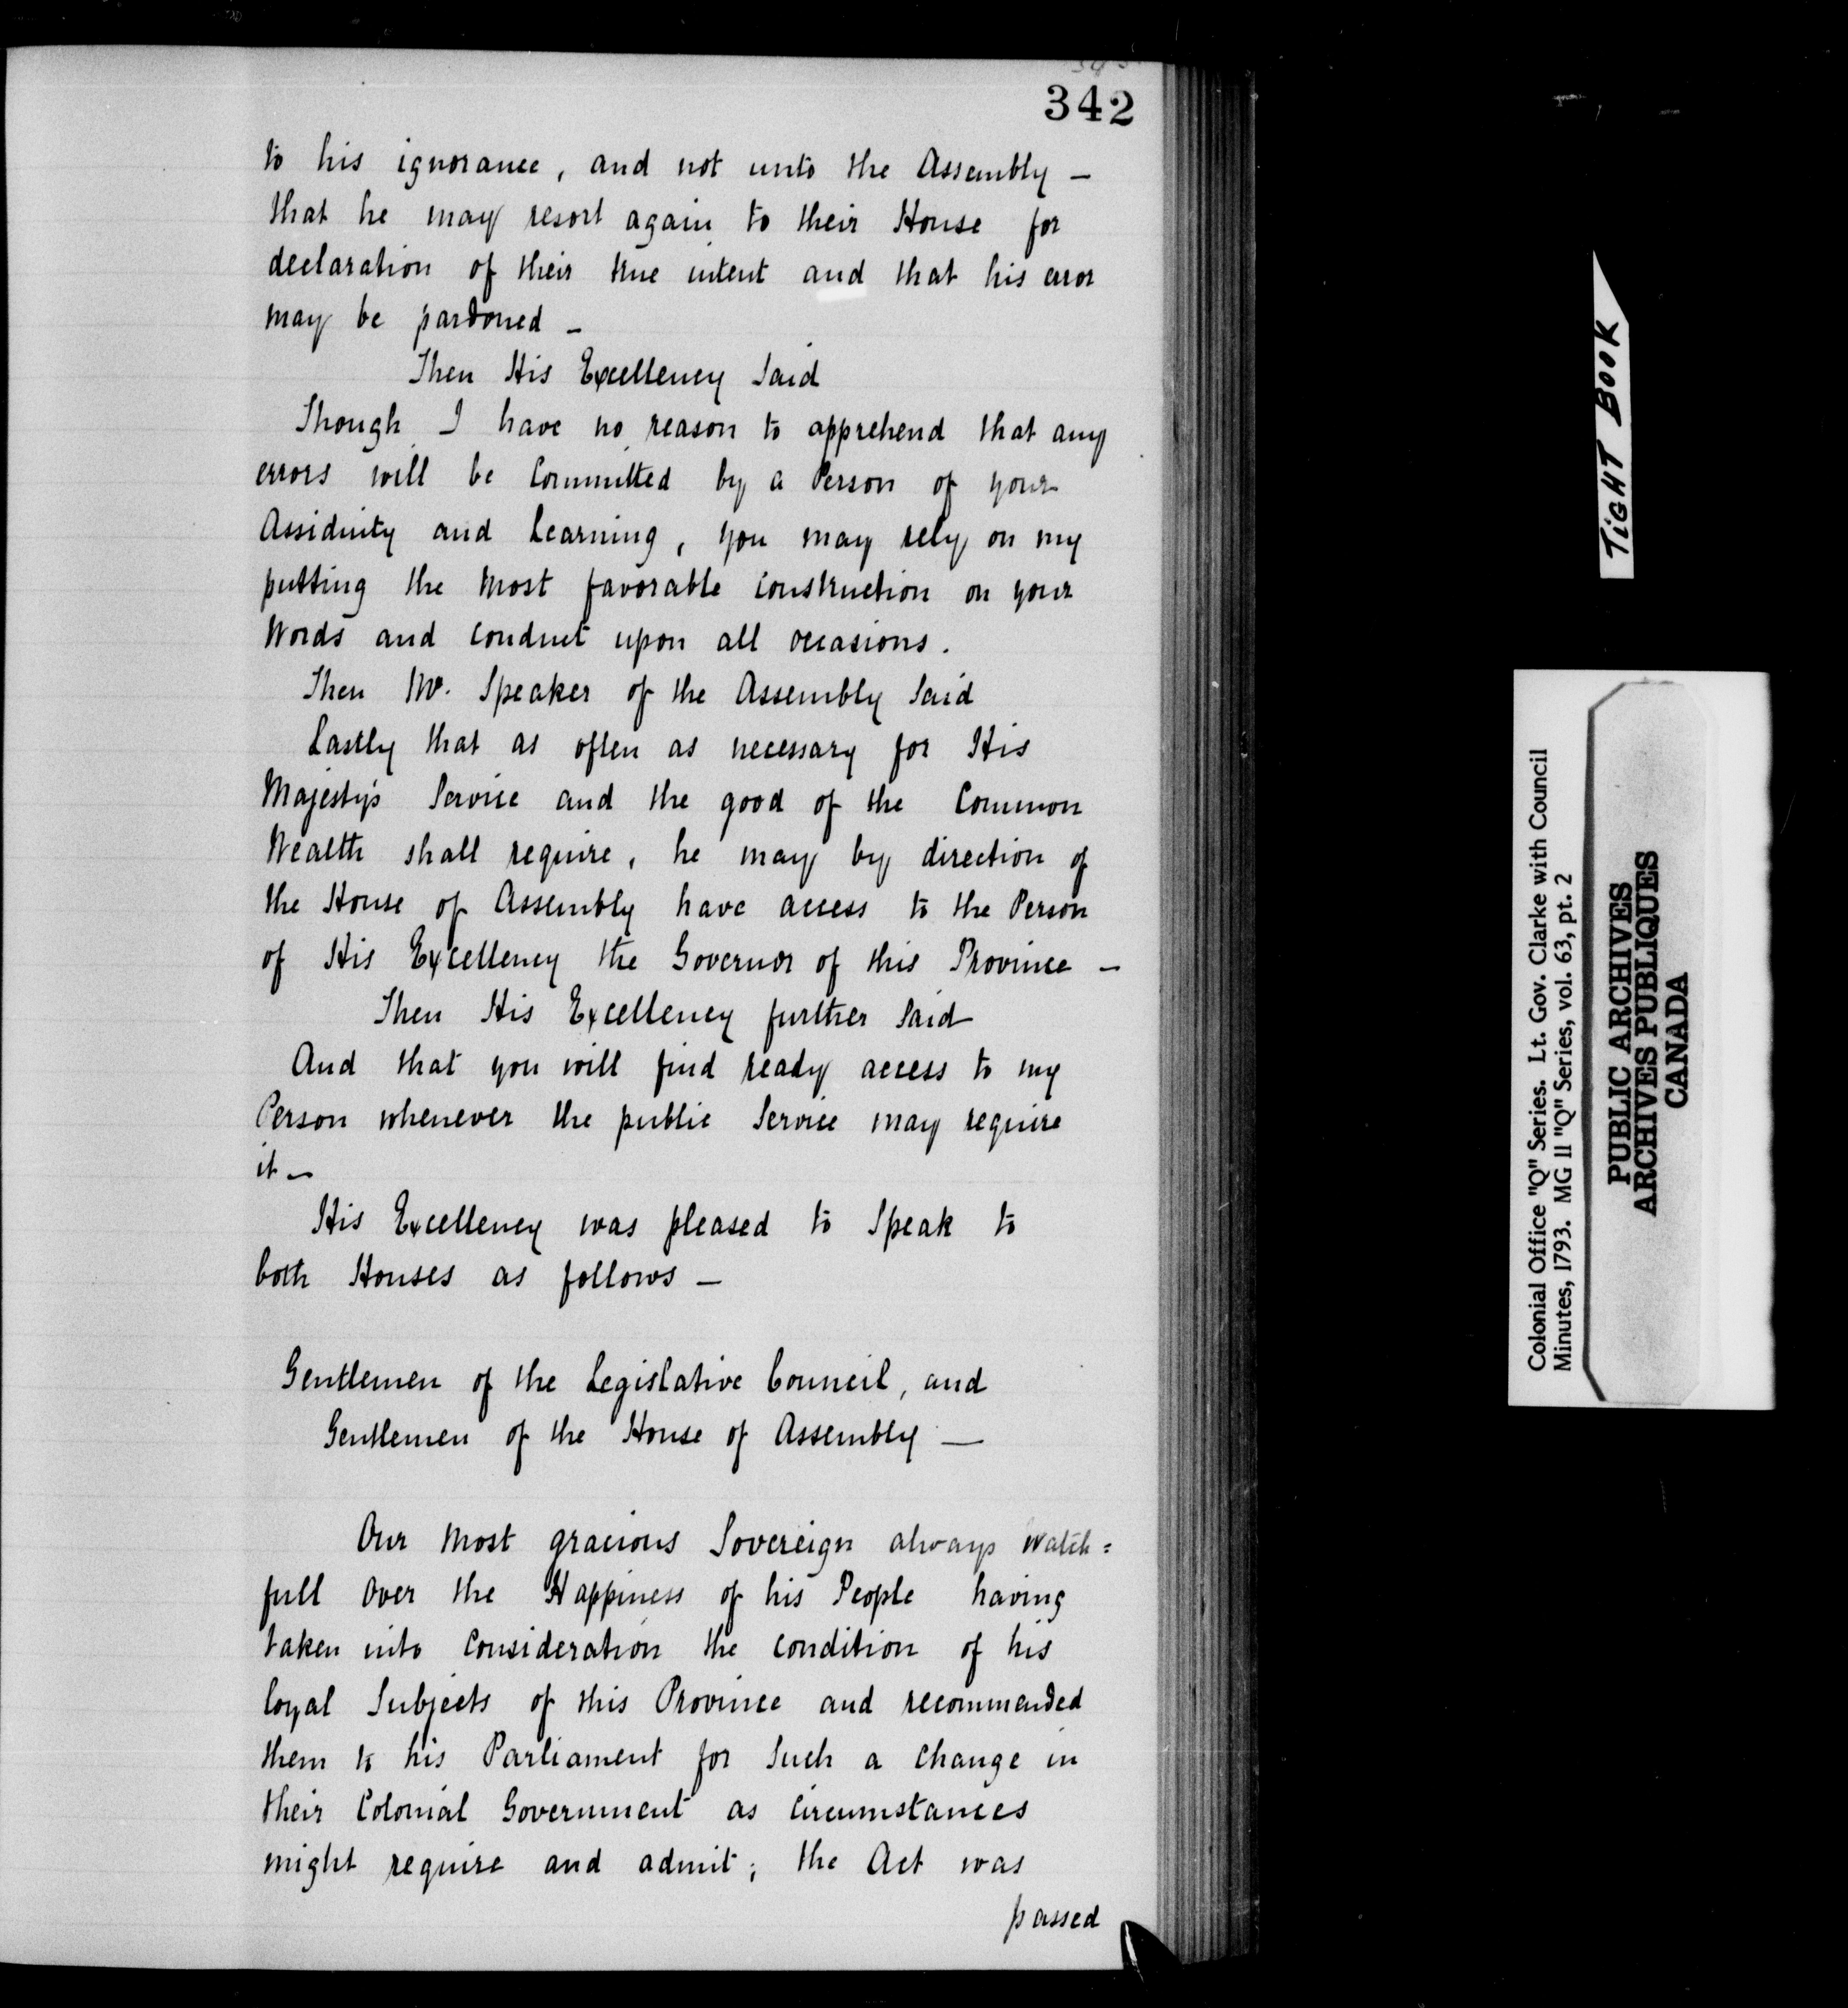 342
to his ignorance, and not unto the Assembly –
that he may resort again to their House for
declaration of their true intent and that his error
may be pardoned –
Then His Excellency Said
Though I have no reason to apprehend that any
errors will be Committed by a Person of your
Assiduity and Learning, you may rely on my
putting the most favorable construction on your
Words and conduct upon all occasions.
Then Mr. Speaker of the Assembly Said
Lastly that as often as necessary for His
Majesty's Service and the good of the Common
Wealth shall require, he may by direction of
the House of Assembly have access to the Person
of His Excellency the Governor of this Province –
Then His Excellency further Said
And that you will find ready access to my
Person whenever the public Service may require
it –
His Excellency was pleased to Speak to
both Houses as follows –
Gentlemen of the Legislative Council, and
Gentlemen of the House of Assembly —
Our most gracious Sovereign always watch=
full over the Happiness of his People having
taken into Consideration the condition of his
loyal Subjects of this Province and recommended
them to his Parliament for Such a change in
their Colonial Government as Circumstances
might require and admit; the Act was
passed
TIGHT BOOK
Colonial Office "Q" Series. Lt. Gov. Clarke with Council
Minutes, 1793. MG 11 "Q" Series, vol. 63, pt. 2
PUBLIC ARCHIVES
ARCHIVES PUBLIQUES
CANADA